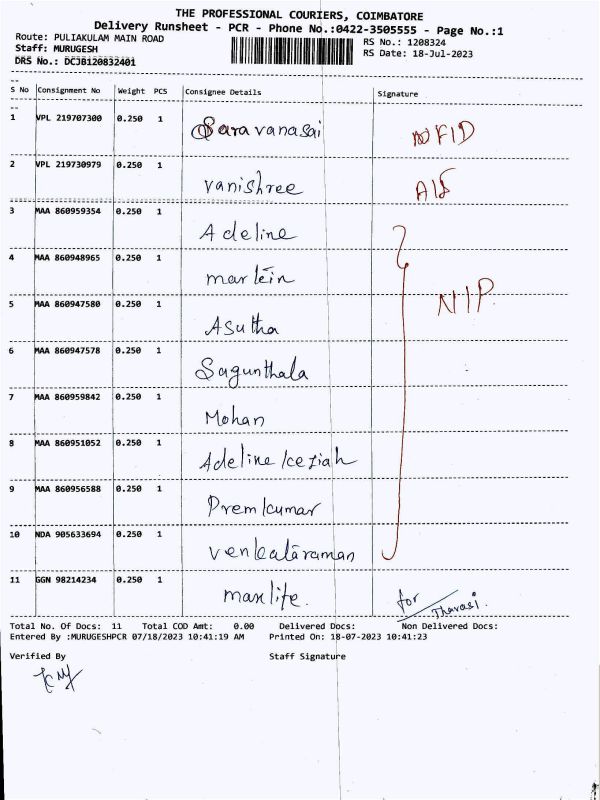 THE PROFESSIONAL COURIERS, COIMBATORE
Delivery Runsheet - PCR - Phone No.:0422-3505555 - Page No.:1
Route: PULIAKULAM MAIN ROAD
RS No.: 1208324
Staff: MURUGESH
RS Date: 18-Jul-2023
DRS No.: DCJB120832401
S No Consignment No Weight PCS Consignee Details Signature
1 VPL 219707300 0.250 1 Saravanasai NFID
2 VPL 219730979 0.250 1 vanishree AIS
3 MAA 860959354 0.250 1 Adeline
4 MAA 860948965 0.250 1 martein
N/P
5 MAA 860947580 0.250 1 Asutha
6 MAA 860947578 0.250 1 Sagunthala
7 MAA 860959842 0.250 1 Mohan
8 MAA 860951052 0.250 1 Adeline keziah
9 MAA 860956588 0.250 1 Premkumar
10 NDA 905633694 0.250 1 venkataraman
11 GGN 98214234 0.250 1 maxlife. for Tharasi.
Total No. Of Docs: 11 Total COD Amt: 0.00 Delivered Docs: Non Delivered Docs:
Entered By :MURUGESHPCR 07/18/2023 10:41:19 AM Printed On: 18-07-2023 10:41:23
Verified By Staff Signature